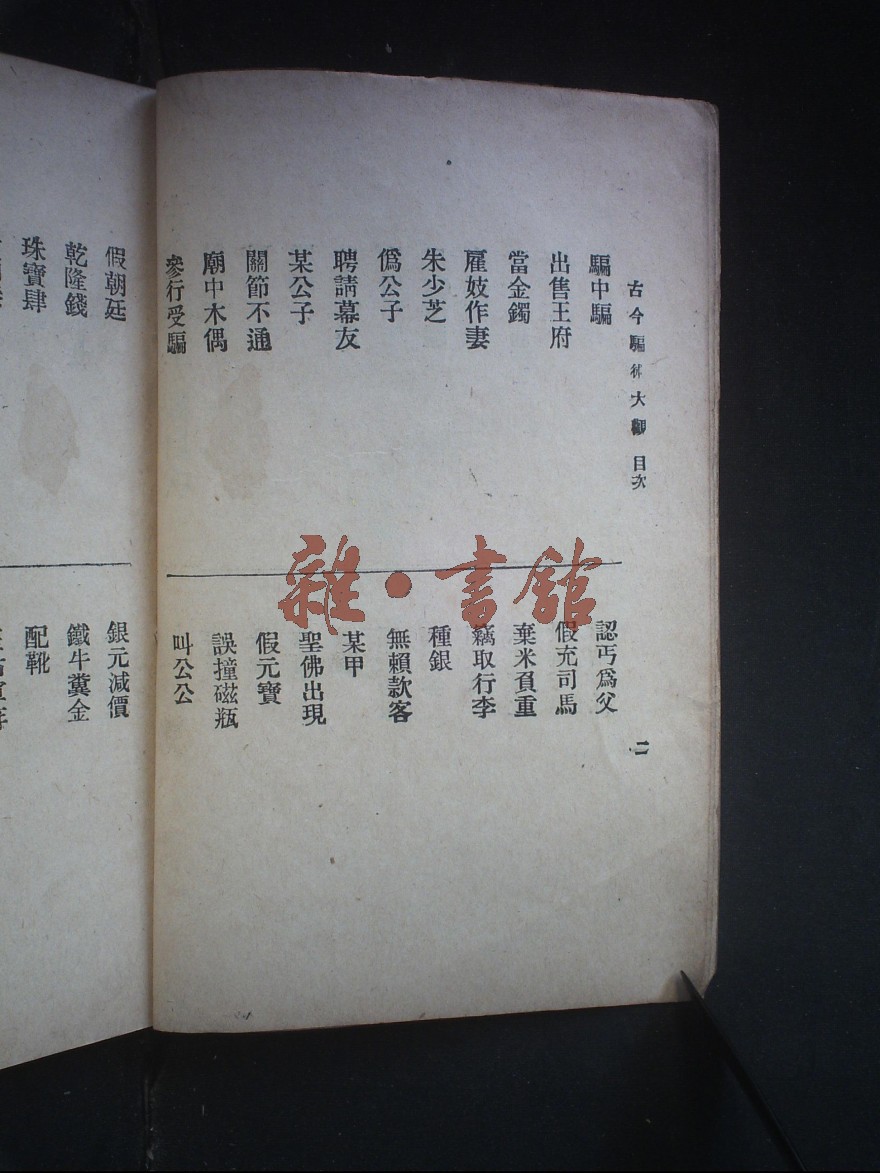 古今騙術大觀 目次
二
騙中騙
出售王府
當金鐲
雇妓作妻
朱少芝
僞公子
聘請幕友
某公子
關節不通
廟中木偶
參行受騙
認丐爲父
假充司馬
棄米負重
竊取行李
種銀
無賴款客
某甲
聖佛出現
假元寶
誤撞磁瓶
叫公公
假朝廷
乾隆錢
珠寶肆
銀元減價
鐵牛糞金
配靴
雜·書館